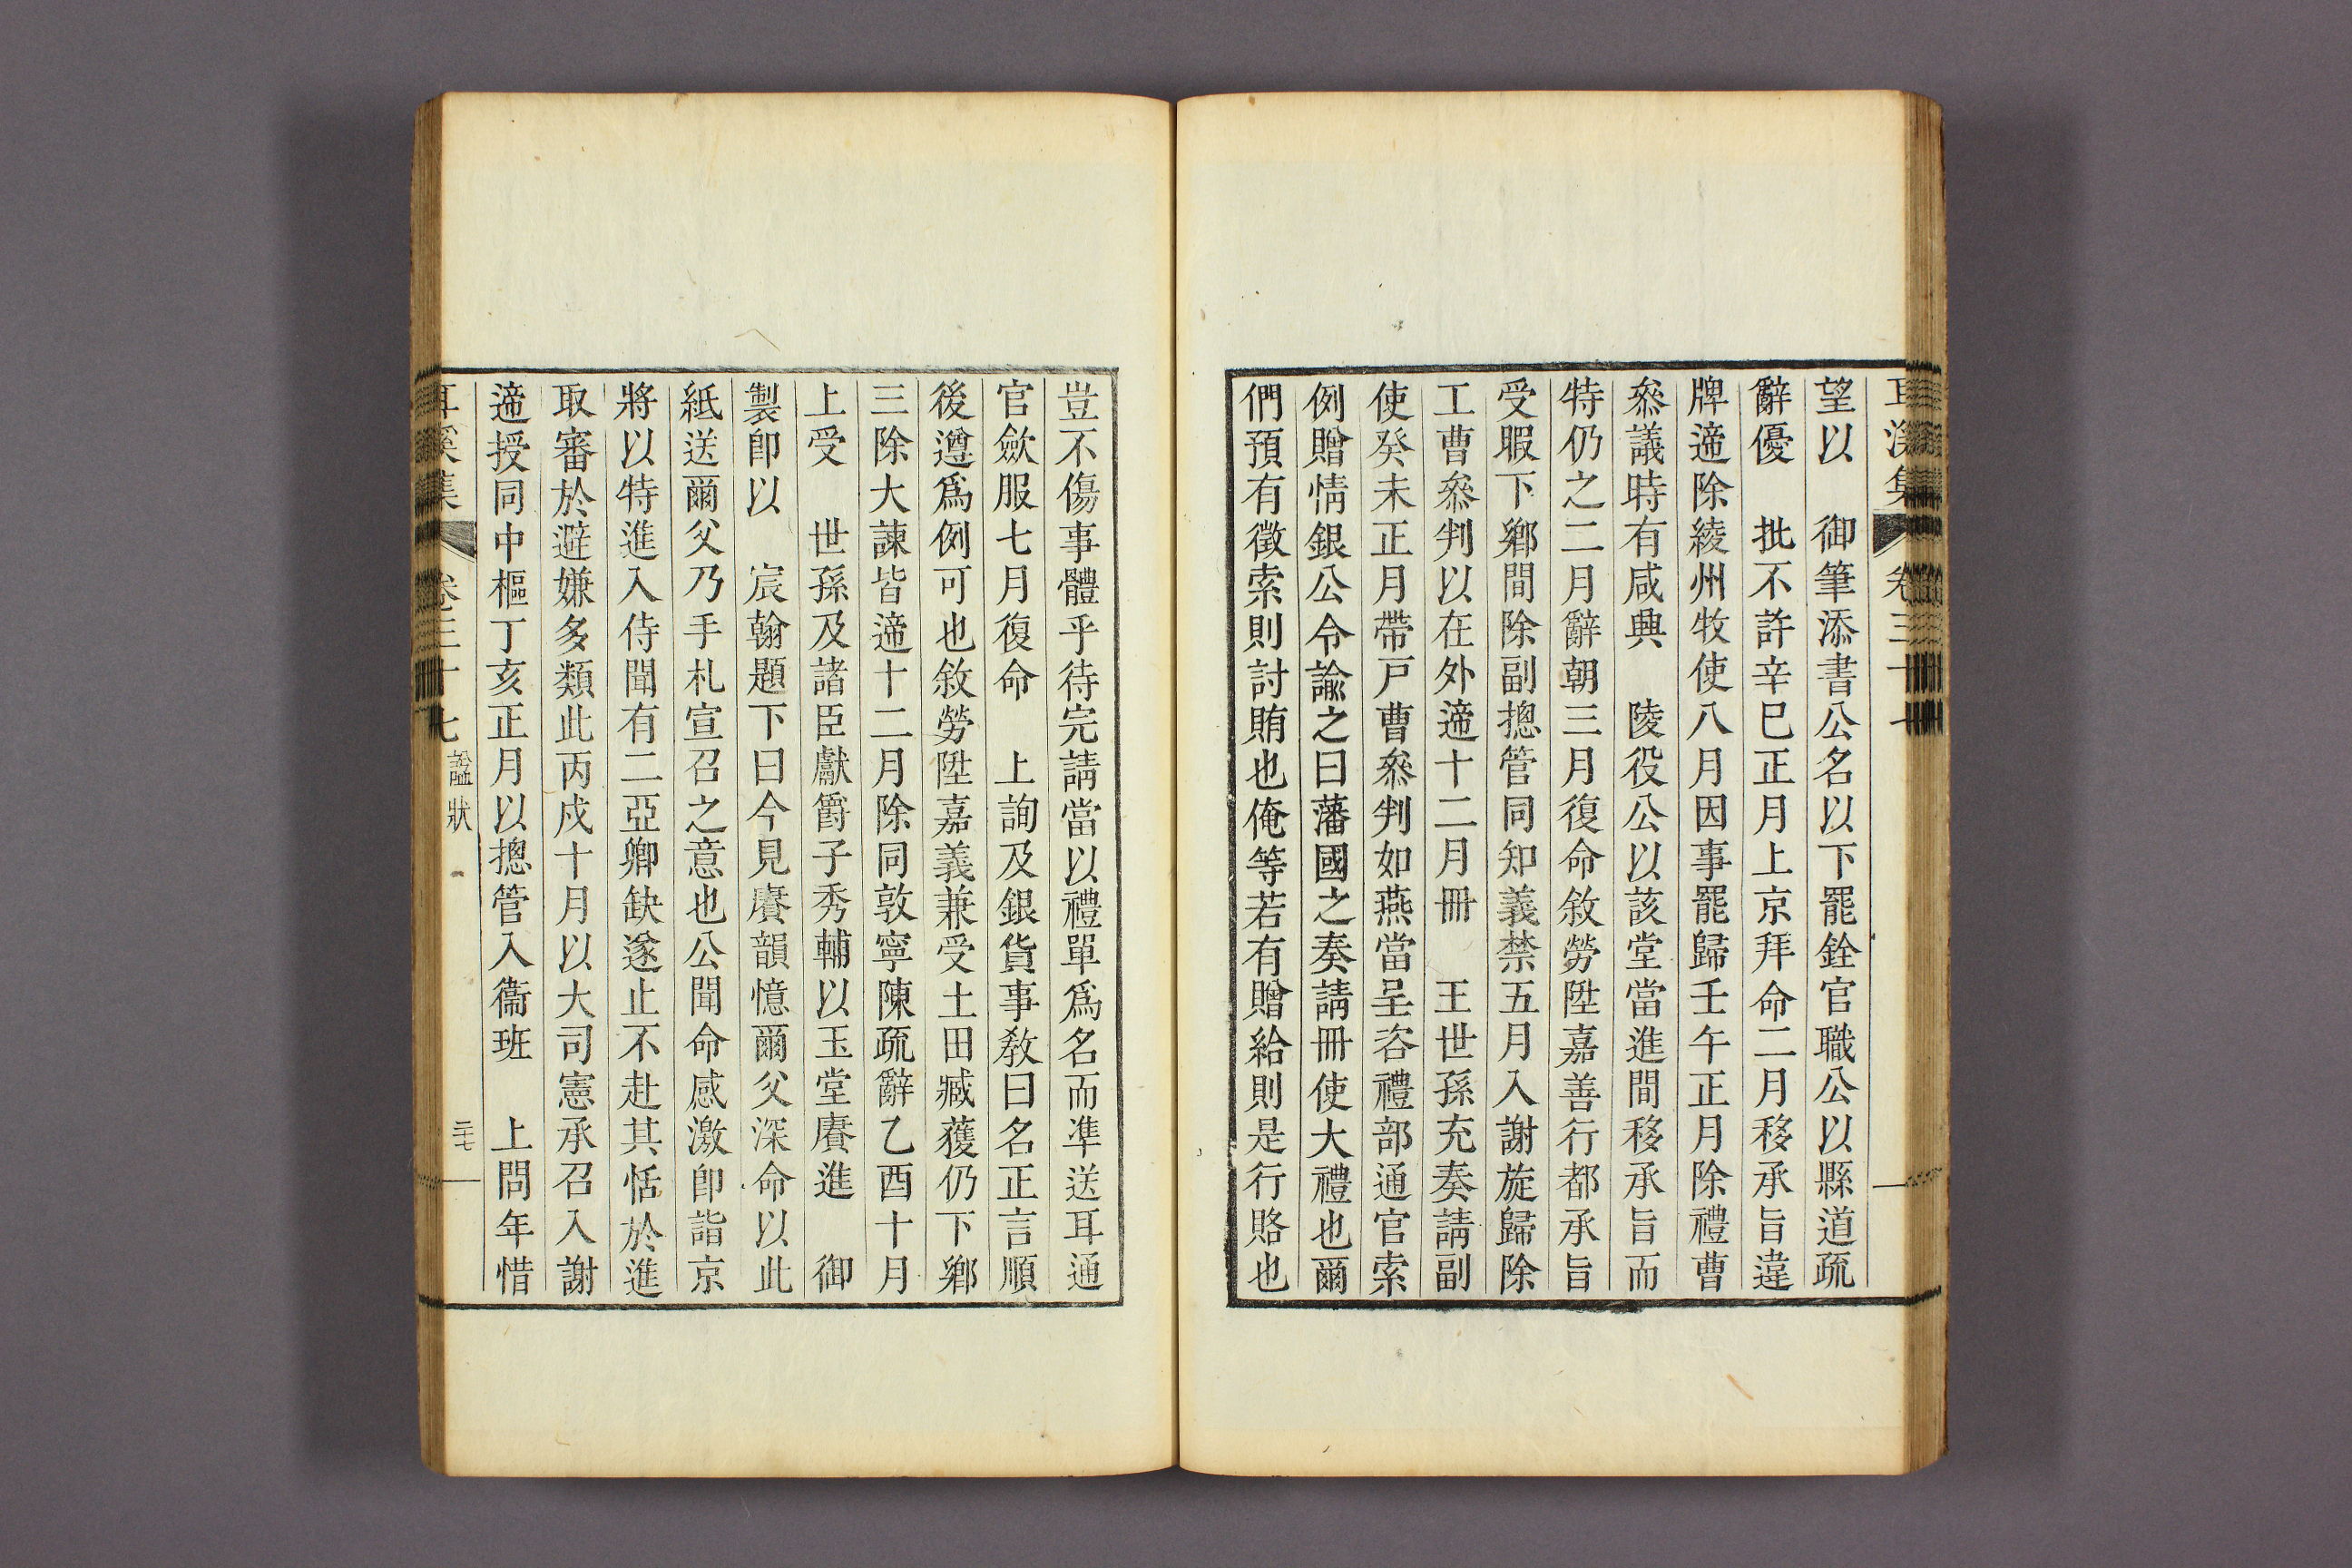 耳溪集 卷三十七
望以　御筆添書公名以下罷銓官職公以縣道疏
辭優　批不許辛巳正月上京拜命二月移承旨違
牌遞除綾州牧使八月因事罷歸壬午正月除禮曹
叅議時有咸興　陵役公以該堂當進間移承旨而
特仍之二月辭朝三月復命敘勞陞嘉善行都承旨
受暇下鄕間除副摠管同知義禁五月入謝旋歸除
工曹叅判以在外遞十二月冊　王世孫充奏請副
使癸未正月帶戶曹叅判如燕當呈咨禮部通官索
例贈情銀公令諭之曰藩國之奏請冊使大禮也爾
們預有徵索則討賄也俺等若有贈給則是行賂也
豈不傷事體乎待完請當以禮單爲名而準送耳通
官歛服七月復命　上詢及銀貨事敎曰名正言順
後遵爲例可也敘勞陞嘉義兼受土田臧獲仍下鄕
三除大諫皆遞十二月除同敦寧陳疏辭乙酉十月
上受　世孫及諸臣獻爵子秀輔以玉堂賡進　御
製卽以　宸翰題下曰今見賡韻憶爾父深命以此
紙送爾父乃手札宣召之意也公聞命感激卽詣京
將以特進入侍聞有二亞卿缺遂止不赴其恬於進
取審於避嫌多類此丙戌十月以大司憲承召入謝
遞授同中樞丁亥正月以摠管入衞班　上問年惜
耳溪集 卷三十七 諡狀 二十七